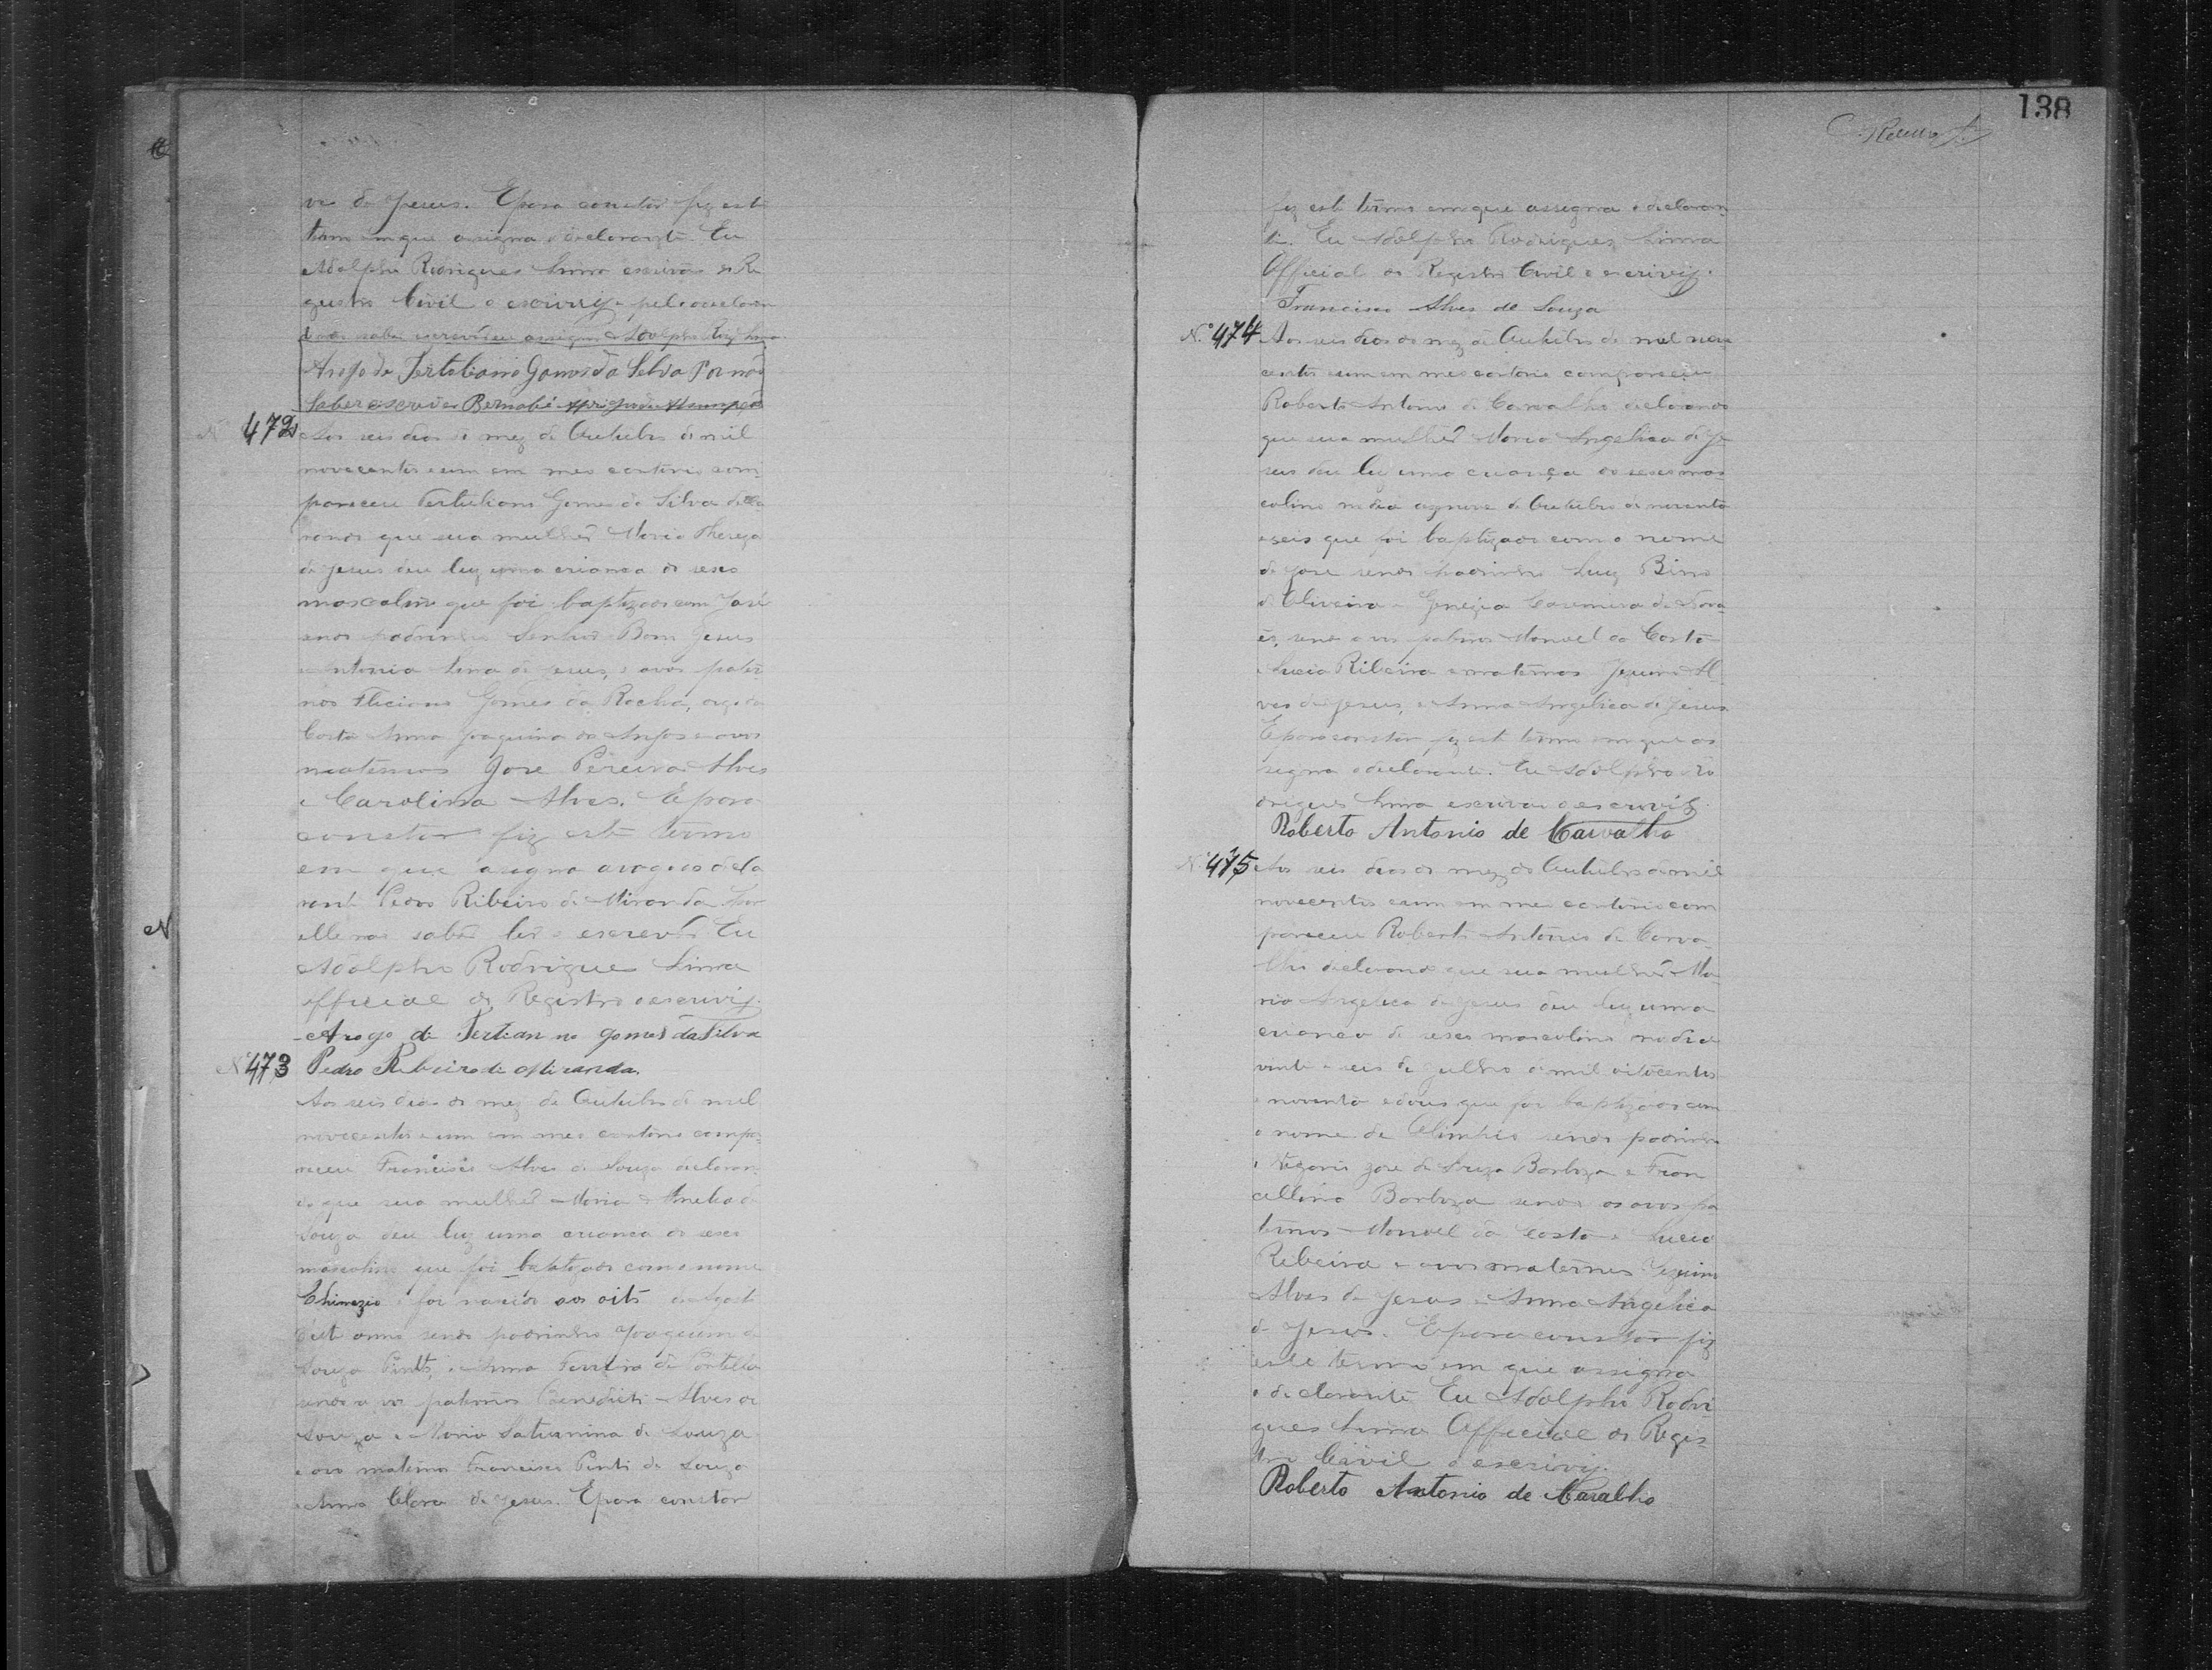 ves de Jesus. E para constar fiz este
termo em que assigna o declarante. Eu
Adolpho Rodrigues Lima escrivão do Re
gistro Civil o escrivy e pelo declaran
te não saber escrever assigna Adolpho Rodz Lima
Arogo de Tertoliano Gomos da Silva Por não
Saber escrever Bernabé
Nº 472
Aos seis dias do mez de Outubro de mil
novecentos e um em meo cartorio com
pareceu Tertuliano Gomes da Silva decla
rando que sua mulher Maria Thereza
de Jesus deu luz uma criança do sexo
mascolino que foi baptizado com José
sendo padrinho Senhor Bom Jesus
e Antonia Lina de Jesus, e avos pater
nos Fliciano Gomes da Rocha,
Costa Anna Joaquina dos Anjos e avos
maternos José Pereira Alves
e Carolina Alves. E para
constar fiz este termo
em que asigna arogo do decla
rante Pedro Ribeiro de Miranda por
elle não saber ler e escrever Eu
Adolpho Rodrigues Lima
official do Registro o escrivy.
Arogo de Tertian no gomes da Silva
Nº 473
Pedro Ribeiro de Miranda.
Aos seis dias do mez de Outubro de mil
novecentos e um em meo cartorio compa
receu Francisco Alves de Souza declaran
do que sua mulher Maria Amelia de
Souza deu luz uma criança do sexo
mascolino que foi baptizado com o nome
e foi nascido aos oito de Agosto
deste anno sendo padrinho Joaquim de
Souza Pinto, e Anna Ferreira de Portella
sendo avos paternos Benedicto Alves de
Souza e Maria Saturnina de Souza
e avo materno Francisco Pinto de Souza
e Anna Clara de Jesus. E para constar
138
fiz este termo em que assigna o declaran
te. Eu Adolpho Rodrigues Lima
Official do Registro Civil o escrivy.
Francisco Alves de Souza
Nº 474
Aos seis dias do mez de Outubro de mil nove
centos e um em meo cartorio compareceu
Roberto Antonio de Carvalho declarando
que sua mulher Maria Angelica de Je
sus deu luz uma criança do sexo mas
colino no dia de Outubro de noventa
e seis que foi baptizado com o nome
de José sendo padrinho Luiz
de Oliveira e Casemira de Nova
es, sendo avos paternos Manoel da Costa
e Lucia Ribeira e maternos Al
ves de Jesus, e Anna Angelica de Jesus.
E para constar fiz este termo em que as
signa o declarante. Eu Adolpho Ro
drigues Lima escrivão o escrivy.
Roberto Antonio de Carvalho
Nº 475
Aos seis dias do mez de Outubro de mil
novecentos e um em meu cartorio com
pareceu Roberto Antonio de Carva
lho declarando que sua mulher Ma
ria Angelica de Jesus deu luz uma
criança do sexo mascolino no dia
vinte e seis de Julho de mil oitocentos
e noventa e dous que foi baptizado com
o nome de Olimpio sendo padrinho
o Vigario José de Souza Barboza e Fran
cellina Barboza sendo os avos pa
ternos Manoel da Costa e Lucia
Ribeira e avos maternos
Alves de Jesus e Anna Angelica
de Jesus. E para constar fiz
este termo em que assigna
o declarante Eu Adolpho Rodri
gues Lima Official do Regis
tro Civil o escrivy.
Roberto Antonio de Caralho